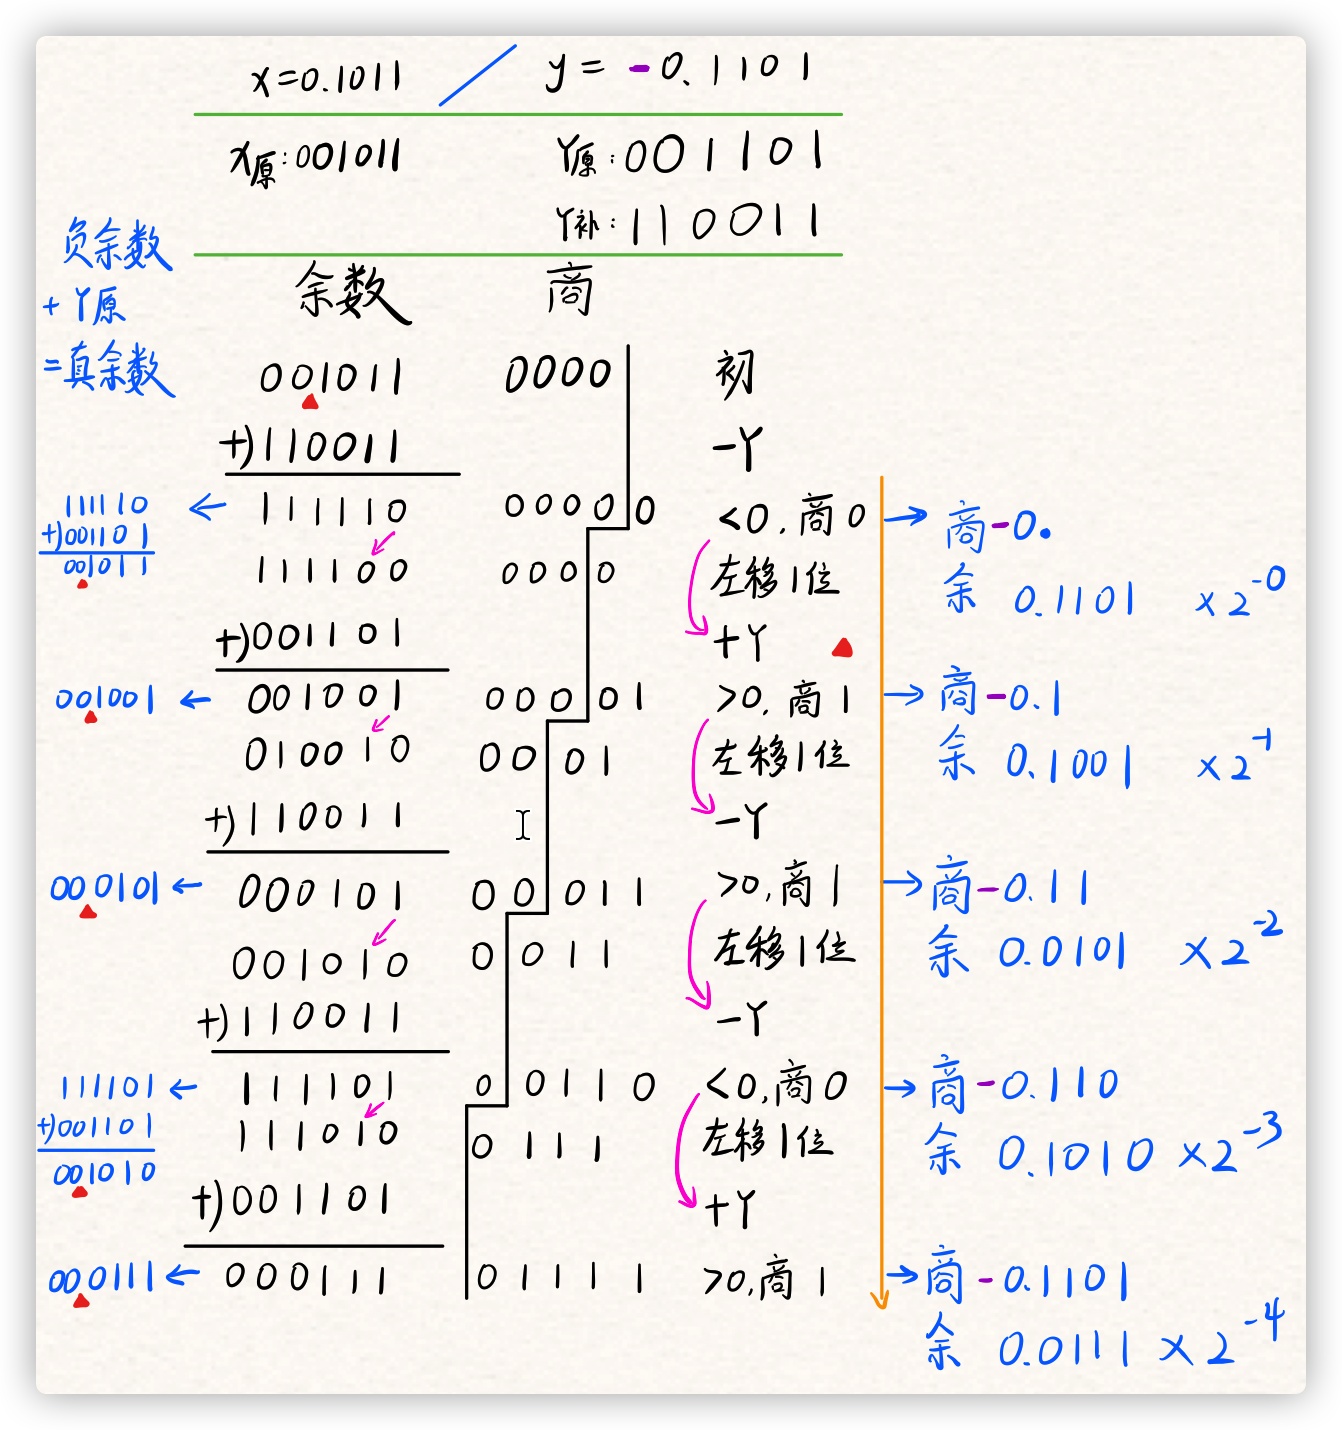 x=0.1011 / y = -0.1101
x原:001011 Y原:001101
Y补:110011
负余数
+Y原
=真余数
余数 商
001011 0000 初
+)110011 -Y
111110 ← 111110 00000 <0,商0 → 商-0.
+)001101
001011
111100 0000 左移1位 余 0.1101 ×2^-0
+)001101 +Y
001001 ← 001001 00001 >0,商1 → 商-0.1
010010 0001 左移1位 余 0.1001 ×2^-1
+)110011 -Y
000101 ← 000101 00011 >0,商1 → 商-0.11
001010 0011 左移1位 余 0.0101 ×2^-2
+)110011 -Y
111101 ← 111101 00110 <0,商0 → 商-0.110
+)001101
001010
111010 0111 左移1位 余 0.1010 ×2^-3
+)001101 +Y
000111 ← 000111 01111 >0,商1 → 商-0.1101
余 0.0111 ×2^-4